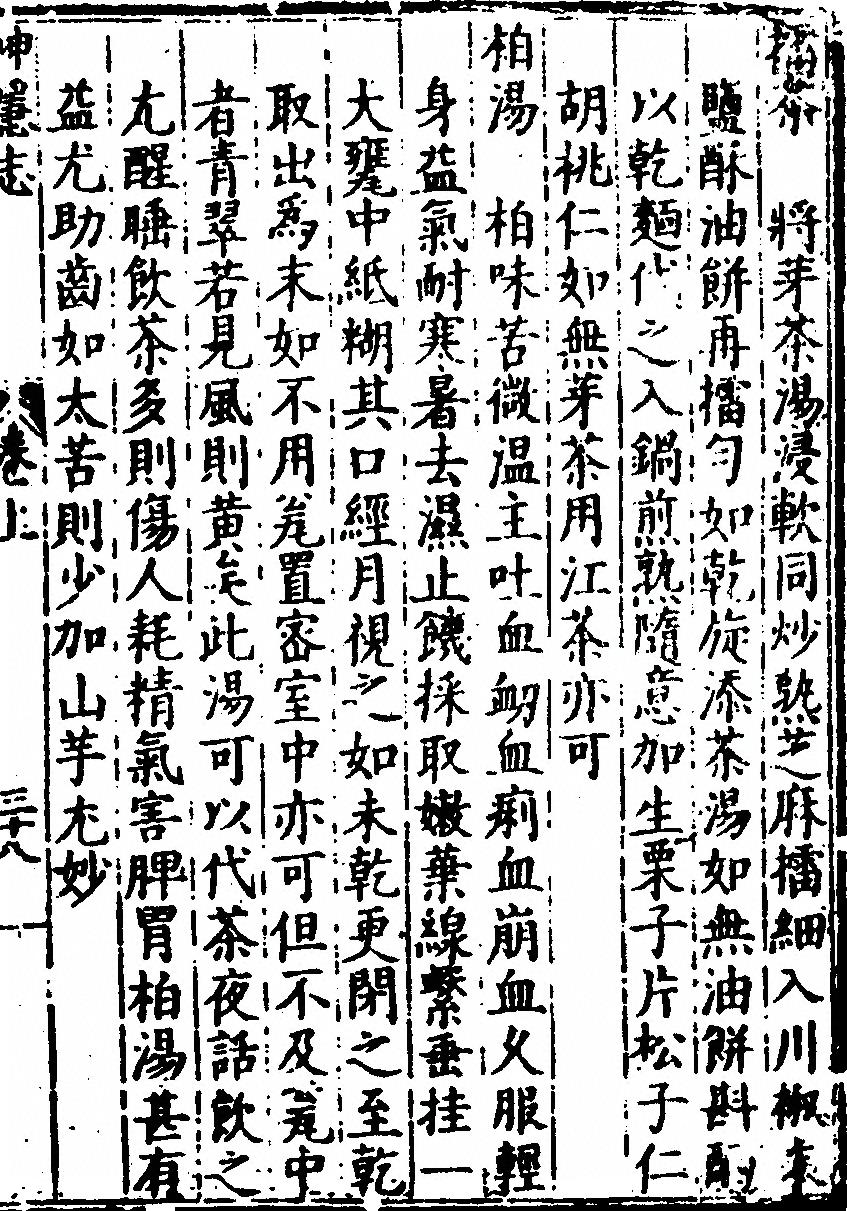 擂茶 將芽茶湯浸軟同炒熟芝麻擂細入川椒末
鹽酥油餅再擂勻如乾旋添茶湯如無油餅斟酌
以乾麵代之入鍋煎熟隨意加生栗子片松子仁
胡桃仁如無芽茶用江茶亦可
柏湯 柏味苦微温主吐血衂血痢血崩血久服輕
身益氣耐寒暑去濕止饑採取嫩葉線繫垂挂一
大甕中紙糊其口經月視之如未乾更閉之至乾
取出爲末如不用瓮置密室中亦可但不及瓮中
者青翠若見風則黄矣此湯可以代茶夜話飲之
尤醒睡飲茶多則傷人耗精氣害脾胃柏湯甚有
益尤助齒如太苦則少加山芋尤妙
卷上
三十八